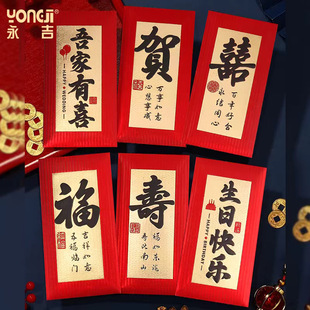 YONGJI
永吉
吾家有喜
HAPPY WEDDING
賀
万事如意
心想事成
囍
百年好合
永结同心
福
吉祥如意
五福临门
寿
福如东海
寿比南山
生日快乐
HAPPY BIRTHDAY